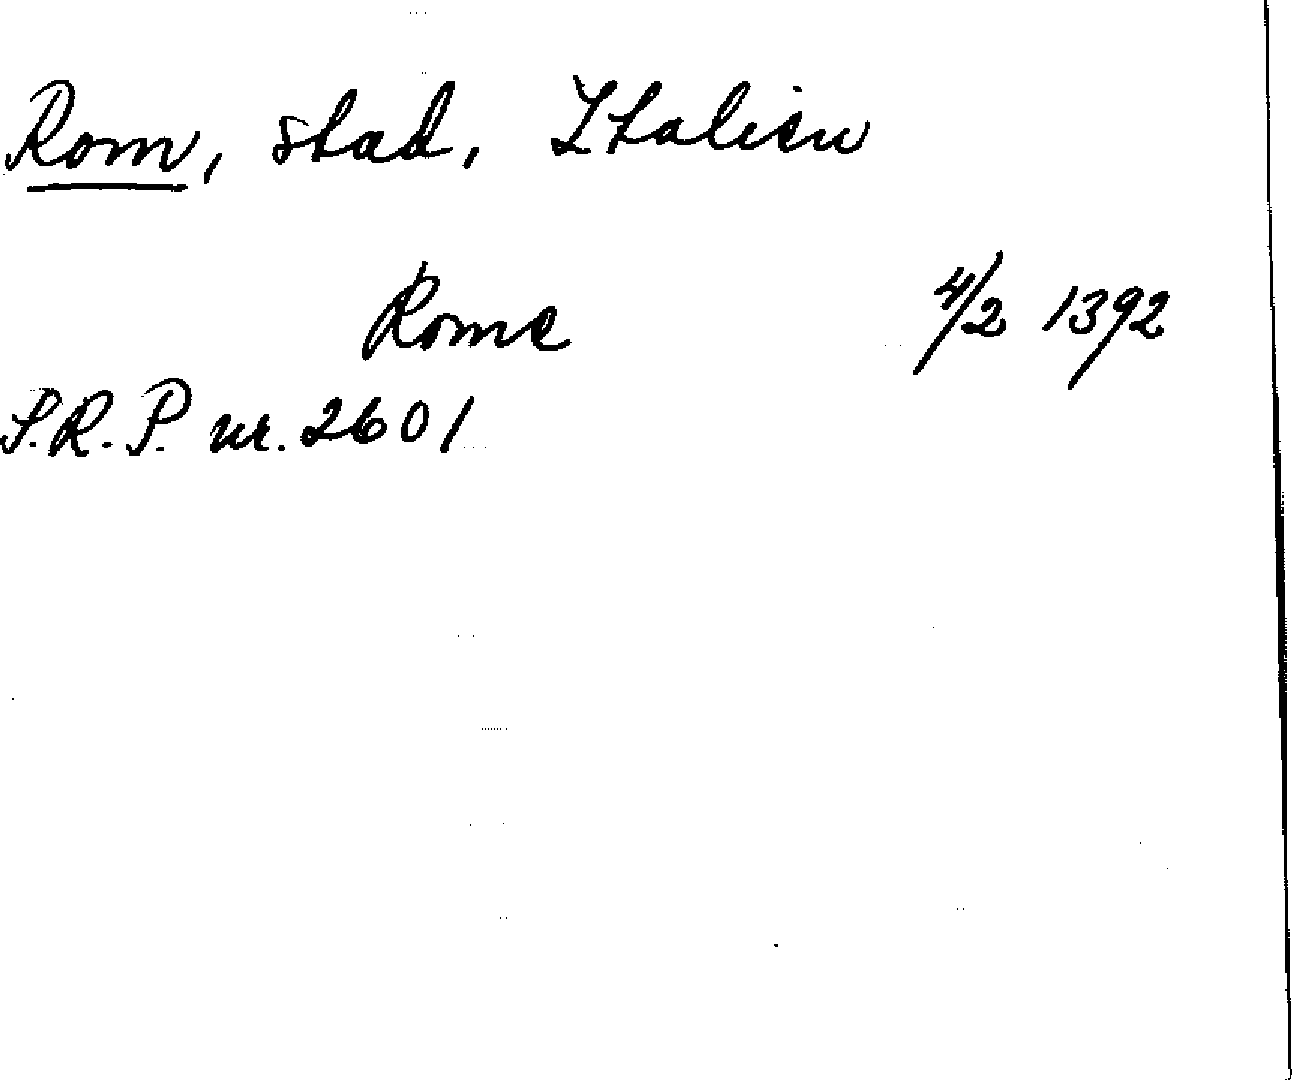 Rom, stad, Italien
Rome 4/2 1392
S.R.P. nr. 2601